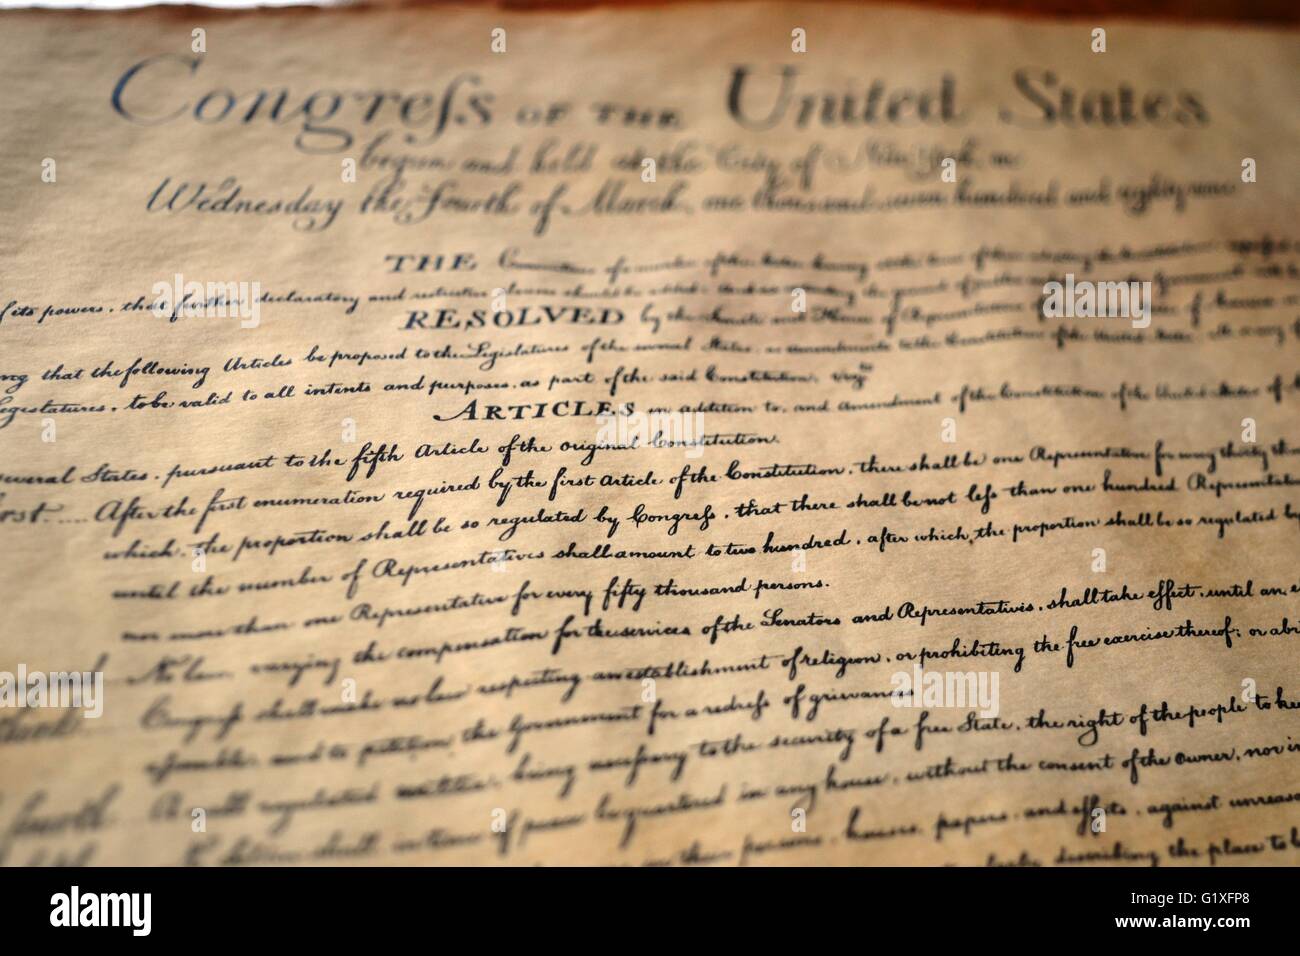 Congreſs OF THE United States
begun and held at the City of New York, on
Wednesday the Fourth of March, one thousand seven hundred and eighty nine
THE
of its powers, that further declaratory and restrictive clauses should be added
RESOLVED by the Senate and House of Representatives of the United States of America
ng that the following Articles be proposed to the Legislatures of the several States, as amendments to the Constitution of the United States
Legislatures, to be valid to all intents and purposes, as part of the said Constitution, vizt
ARTICLES in addition to, and amendment of the Constitution of the United States of
several States, pursuant to the fifth Article of the original Constitution.
After the first enumeration required by the first Article of the Constitution, there shall be one Representative for every thirty
which, the proportion shall be so regulated by Congreſs, that there shall be not leſs than one hundred Representatives
until the number of Representatives shall amount to two hundred, after which, the proportion shall be so regulated by
nor more than one Representative for every fifty thousand persons.
No law, varying the compensation for the services of the Senators and Representatives, shall take effect, until an
Congreſs shall make no law respecting an establishment of religion, or prohibiting the free exercise thereof; or
aſsemble, and to petition the Government for a redreſs of grievances
A well regulated militia, being neceſsary to the security of a free State, the right of the people to
No soldier shall, in time of peace be quartered in any house, without the consent of the Owner, nor in
their persons, houses, papers, and effects, against
describing the place to
alamy
Image ID: G1XFP8
www.alamy.com